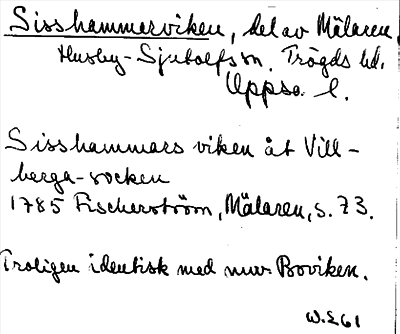 Sisshammarviken, del av Mälaren,
Husby-Sjutolfs sn. Trögds hd.
Uppsa. l.
Sisshammars viken åt Vill-
berga-socken
1785 Fischerström, Mälaren, s. 73.
Troligen identisk med nuv. Boviken.
W.E61